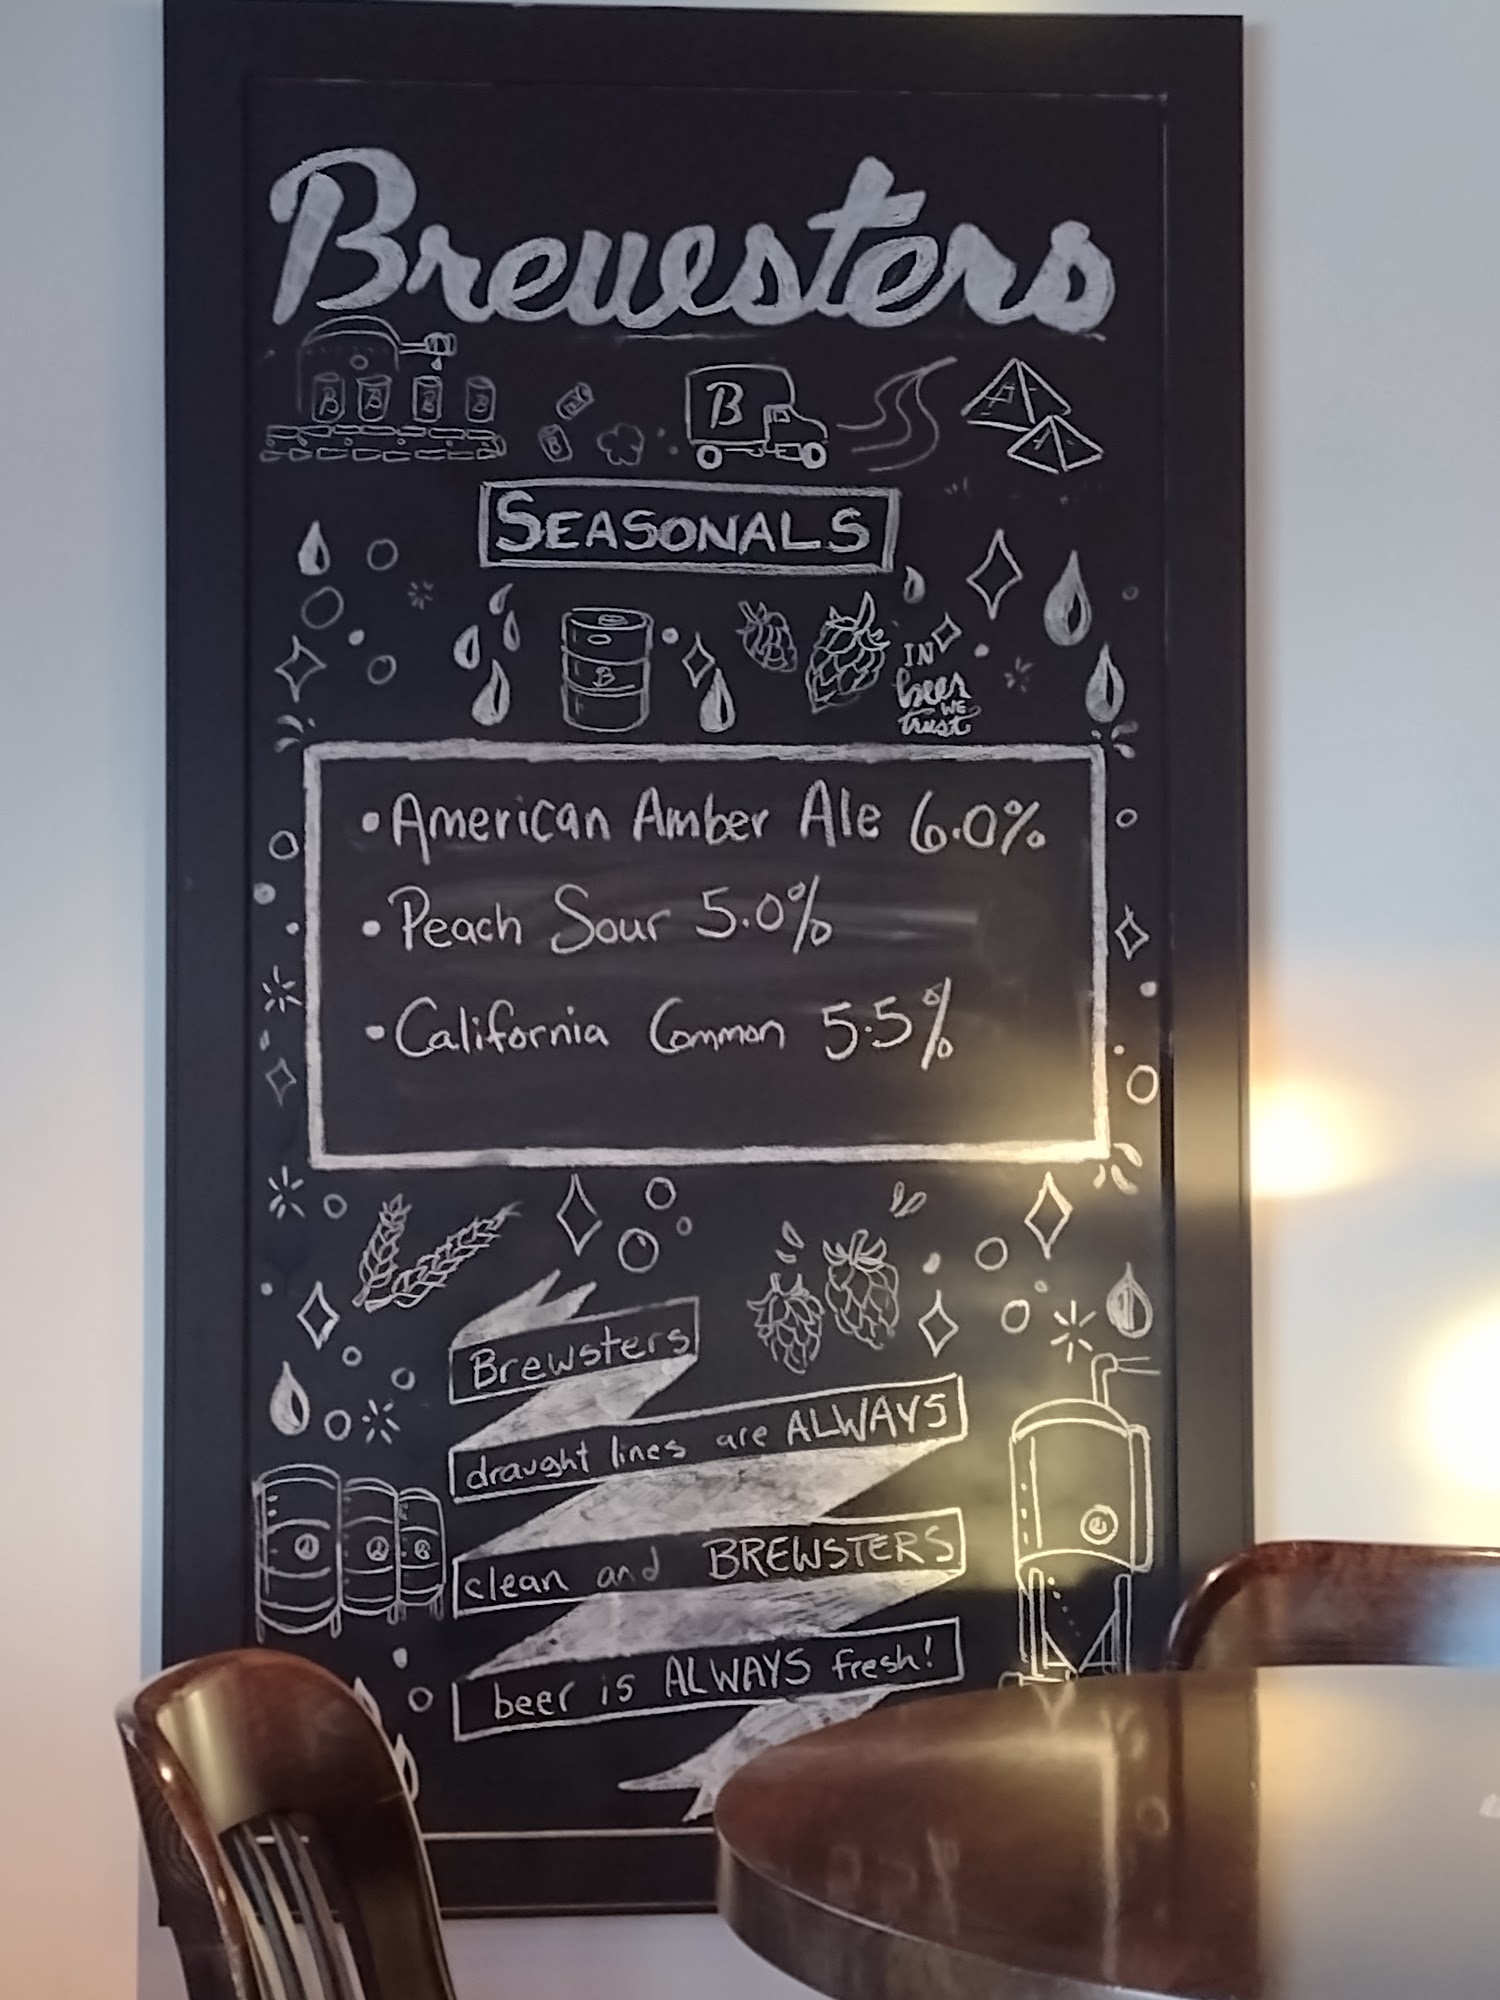 Brewesters
B B B B
B B
B
SEASONALS
B
IN
beer
WE
trust
• American Amber Ale 6.0%
• Peach Sour 5.0%
• California Common 5.5%
Brewsters
draught lines are ALWAYS
clean and BREWSTERS
B
beer is ALWAYS fresh!